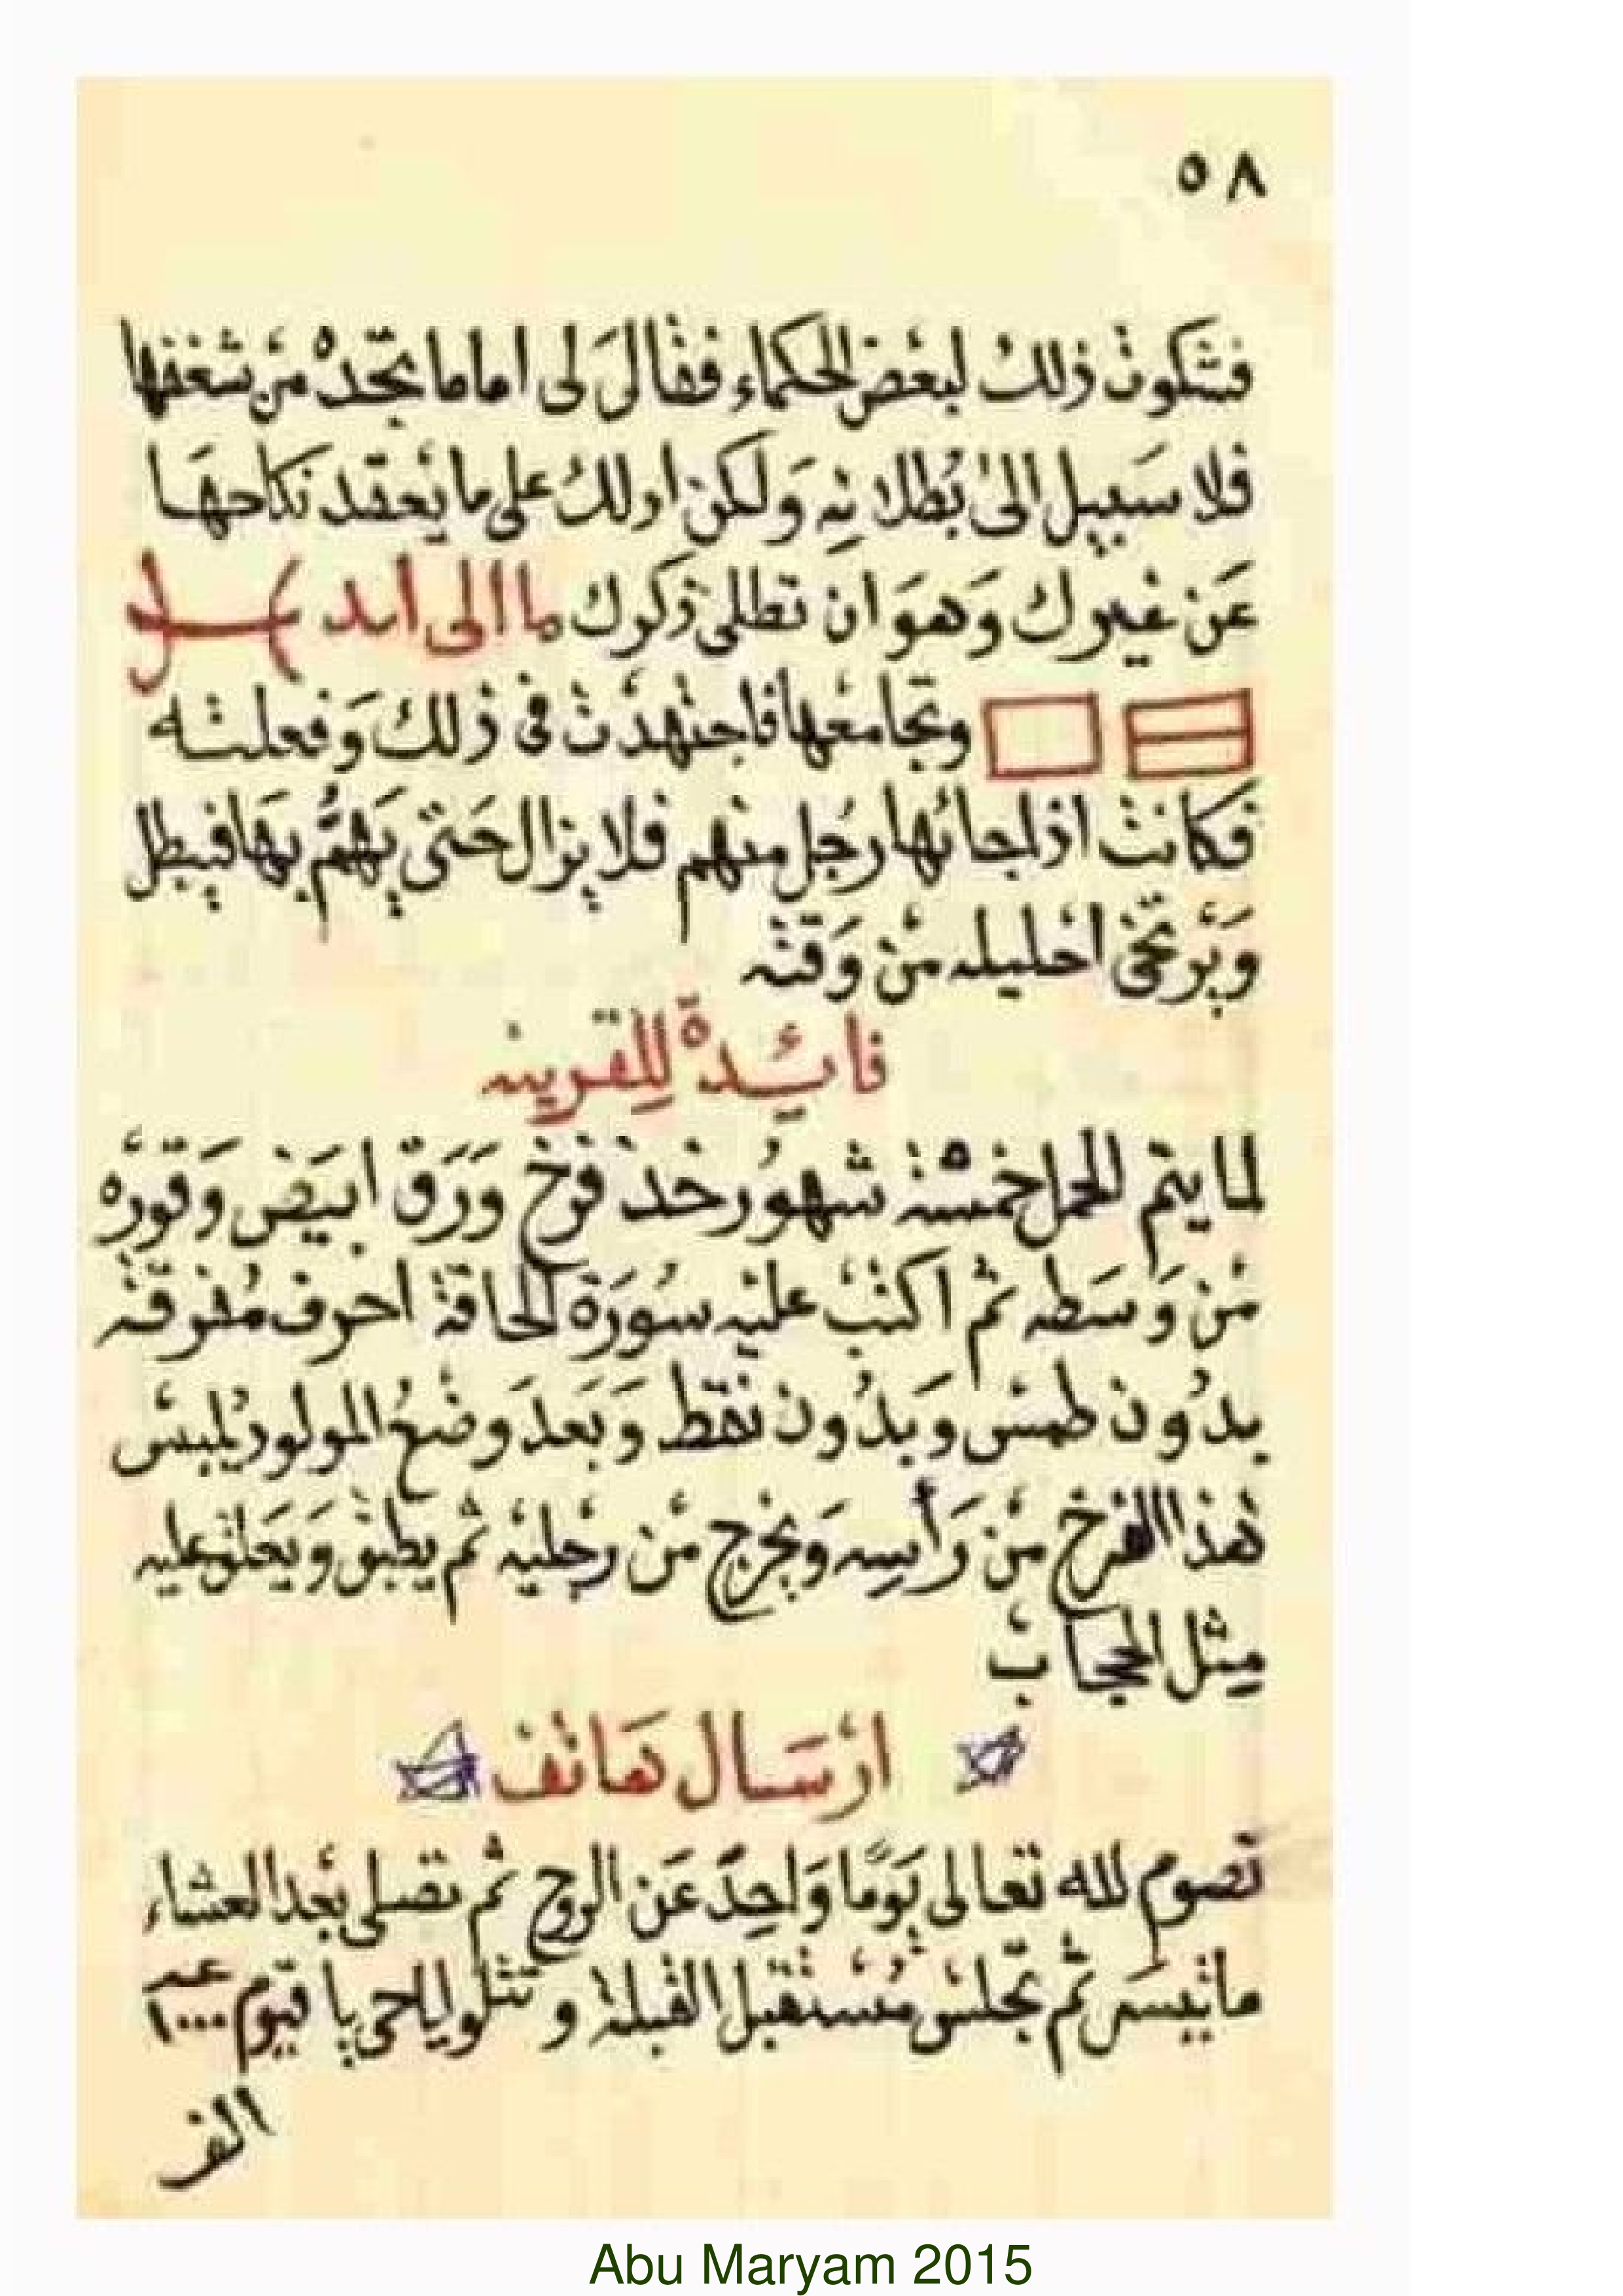 ٥٨
فشكوت ذلك لبعض الحكماء فقال لى اما ما تجده من شغفها
فلا سبيل الى بطلانه ولكن ادلك على ما يعقد نكاحها
عن غيرك وهو ان تطلى ذكرك ما الى
وتجامعها فاجتهدت فى ذلك وفعلته
فكانت اذا جائها رجل منهم فلا يزال حتى يهم بها فيبطل
ويرتخى احليله من وقته
فائدة للقرينه
لما يتم للحمل خمسة شهور خذ فرخ ورق ابيض وقوره
من وسطه ثم اكتب عليه سورة الحاقة احرف مفرقة
بدون طمس وبدون نقط وبعد وضع المولود يلبس
هذا الفرخ من رأسه ويخرج من رجليه ثم يطبق ويعلق عليه
مثل الحجاب
ارسال هاتف
تصوم لله تعالى يوما واحد عن الروح ثم تصلى بعد العشاء
ما تيسر ثم تجلس مستقبل القبلة وتتلو ياحى يا قيوم ١٠٠٠
الف
Abu Maryam 2015